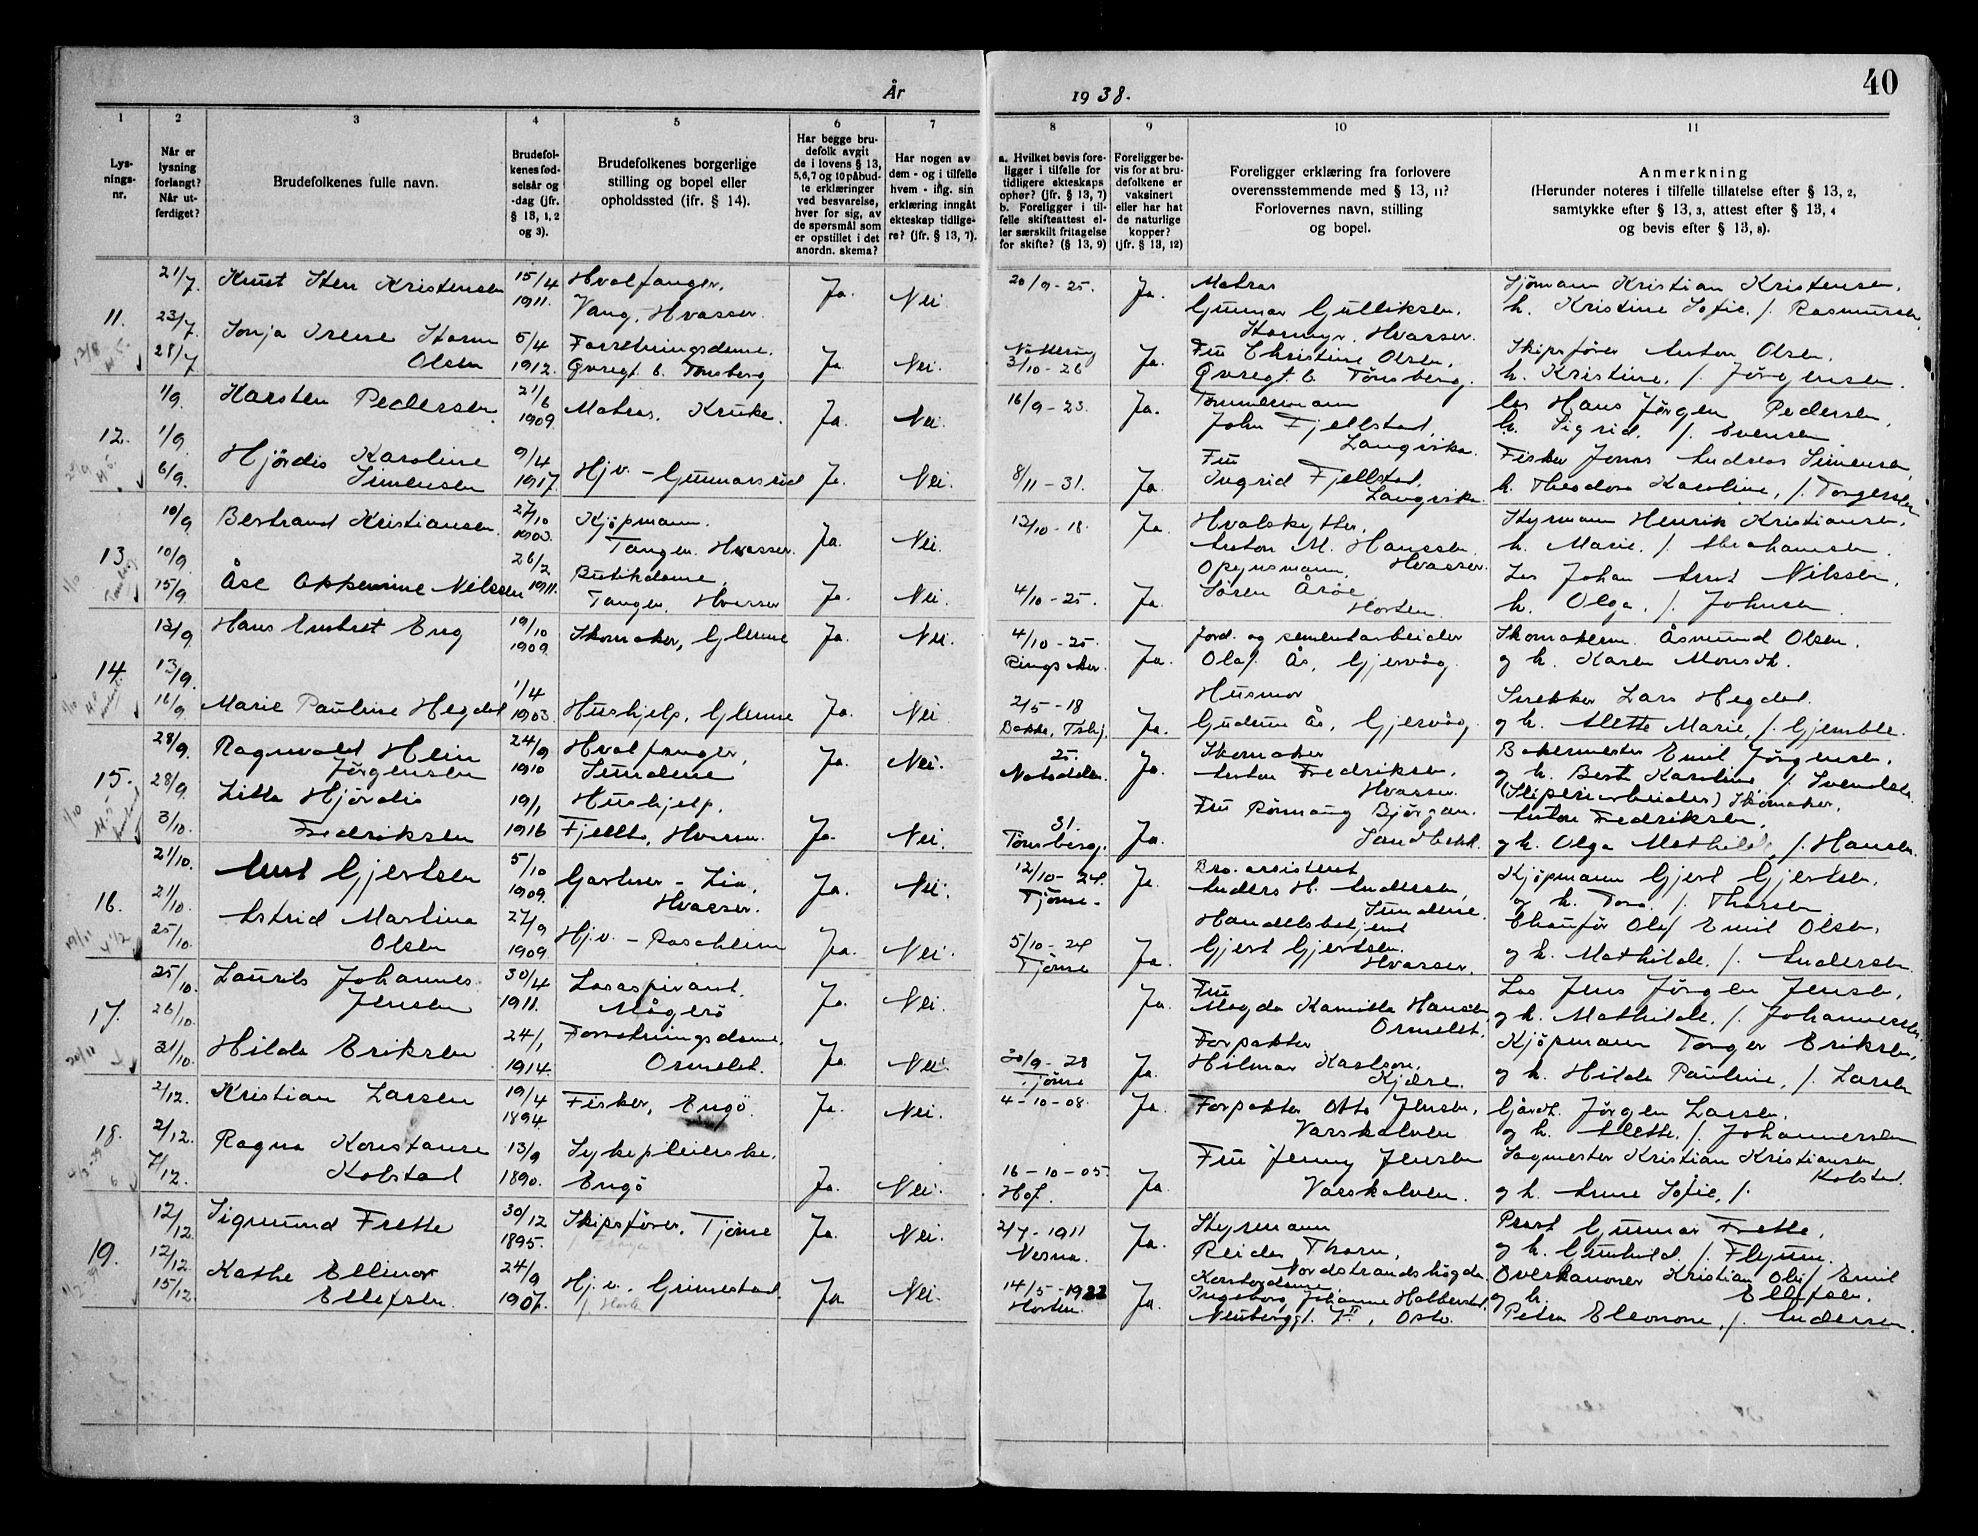 40
År 1938.
1 2 3 4 5 6 7 8 9 10 11
Lysnings-nr.
Når er lysning forlangt? Når utferdiget?
Brudefolkenes fulle navn.
Brudefolkenes fødselsår og -dag (jfr. § 13, 1, 2 og 3).
Brudefolkenes borgerlige stilling og bopel eller opholdssted (ifr. § 14).
Har begge brudefolk avgit de i lovens § 13, 5,6,7 og 10 påbudte erklæringer ved besvarelse, hver for sig, av de spørsmål som er opstillet i det anordn. skema?
Har nogen av dem - og i tilfelle hvem - iflg. sin erklæring inngåt ekteskap tidligere? (jfr. § 13, 7).
a. Hvilket bevis foreligger i tilfelle for tidligere ekteskaps ophør? (jfr. § 13, 7)
b. Foreligger i tilfelle skifteattest eller særskilt fritagelse for skifte? (§ 13, 9)
Foreligger bevis for at brudefolkene er vaksinert eller har hat de naturlige kopper? (jfr. § 13, 12)
Foreligger erklæring fra forlovere overensstemmende med § 13, 11? Forlovernes navn, stilling og bopel.
Anmerkning
(Herunder noteres i tilfelle tillatelse efter § 13, 2, samtykke efter § 13, 3, attest efter § 13, 4 og bevis efter § 13, 8).
11.
21/7. Knut Sten Kristensen 15/4 1911. Hvalfanger, Vang, Hvasser. Ja. Nei. 20/9-25. Ja. Matros Gunnar Gulliksen, Hvasser. Sjömann Kristian Kristensen, h. Kristine Sofie, f. Rasmussen,
23/7 28/7 Sonja Irene Storm Olsen 5/4 1912. Forretningsdame. Øvregt. 6. Tönsberg Ja. Nei. Nötteröy 3/10-26 Ja. Fru Christine Olsen, Øvregt. 6 Tönsberg. Skipsförer Anton Olsen, h. Kristine, f. Jörgensen.
12.
1/9. Karsten Pedersen 21/6 1909 Matros, Kruke. Ja. Nei. 16/9-23. Ja. Tömmermann John Fjellstad, Langvika. Los Hans Jörgen Pedersen h. Sigrid, f. Evensen
1/9. 6/9. Hjördis Karoline Simensen 9/4 1917. Hj.v. - Gunnarsrud Ja. Nei. 8/11-31. Ja. Fru Ingrid Fjellstad, Langvika. Fisker Jonas Andreas Simensen, h. Theodora Karoline, f. Torgersen
13.
10/9. Bertrand Kristiansen. 27/10 1903. Kjöpmann. Tangen. Hvasser. Ja. Nei. 12/10-18. Ja. Hvalskytter, Anton M. Hanssen, Hvasser. Styrmann Henrik Kristiansen, h. Marie, f. Abrahamsen
10/9. 15/9. Åse Nilssen 26/2 1911. Butikdame, Tangen, Hvasser Ja. Nei. 4/10-25. Ja. Opsynsmann, Sören Åröe Horten. Los Johan Nilssen, h. Olga, f. Johnsen.
14.
13/9. Hans Eng 19/10 1909. Skomaker, Glenne Ja. Nei. 4/10-25. Ringsaker. Ja. Jord. og sementarbeider Olaf Ås, Gjervåg. Skomakerm. Åsmund Olsen, og h. Karen
13/9. 16/9. Marie Pauline Hegdal 1/4 1903. Hushjelp, Glenne Ja. Nei 2/5-18 Bakke, Ja. Husmor Gudrun Ås, Gjervåg. Snekker Lars Hegdal og h. Alette Marie, f. Gjemble.
15.
28/9. Ragnvald Hein Jörgensen 24/9 1910 Hvalfanger, Sundene Ja. Nei. 25. Notodden. Ja. Skomaker Anton Fredriksen, Hvasser. Bakermester Emil Jörgensen, og h. Berth Karoline, f. Svendsen.
28/9. 3/10. Lilla Hjördis Fredriksen 19/1 1916 Hushjelp, Fjellto, Hvasser. Ja. Nei. 31. Tönsberg. Ja. Fru Björgan. Sandbekk. (Sliperiarbeider) Skomaker, Anton Fredriksen, og h. Olga Mathilde, f. Hansen.
16.
21/10. Gjertsen 5/10 1909. Gartner - Lia, Hvasser. Ja. Nei. 12/10-24. Tjöme. Ja. Bro.assistent Anders H. Andersen, Sundene. Kjöpmann Gjert Gjertsen, og h. f. Thorsen
21/10. 25/10. Astrid Martina Olsen 27/9 1909. Hj.v. - Ja. Nei. 5/10-24 Tjöme Ja. Handelsbetjent Gjert Gjertsen, Hvasser. Chauför Olaf Emil Olsen, og h. Mathilde, f. Andersen
17.
25/10. Laurits Johannes Jensen 30/4 1911. Losaspirant. Mågerö Ja. Nei. Ja. Fru Magda Kamilla Hansen Ormelet. Los Jens Jörgen Jensen, og h. Mathilde, f. Johannessen.
26/10. 31/10. Hilda Eriksen 24/1 1914. Forretningsdame, Ormelet. Ja. Nei. 30/9-28 Tjöme Ja. Forpakter Hilmar Karlson, Kjære. Kjöpmann Torger Eriksen, og h. Hilda Pauline, f. Larsen
18.
2/12. Kristian Larsen 19/4 1894. Fisker, Engö. Ja. Nei. 4-10-08. Ja. Forpakter Otto Jensen, Varskalven Gårdbr. Jörgen Larsen, og h. Alette, f. Johannessen
2/12. 7/12. Ragna Konstanse Kolstad 13/9 1890. Sykepleierske, Engö Ja. Nei. 16-10-05. Hof. Ja. Fru Jenny Jensen Varskalven. Sagmester Kristian Kristiansen Kolstad. og h. Anne Sofie, f.
19.
12/12. Sigmund Frette 30/12 1895. Skipsförer, Tjöme Ja. Nei. 2/7-1911 Nesna. Ja. Styrmann Reidar Thorn, Nordstrandshögda. Prest Gunnar Frette, og h. Gunhild, f. Flyum.
12/12. 15/12. Kathe Ellinor Ellefsen. 24/9 1907. Hj.v. Grimestad. Ja. Nei. 14/5-1922 Horten. Ja. Kontordame Ingeborg Julianne Halberstad, Neuberggt. 7 II, Oslo. Overkanoner Kristian Olaf Emil Ellefsen, og h. Petra Eleonore, f. Andersen.